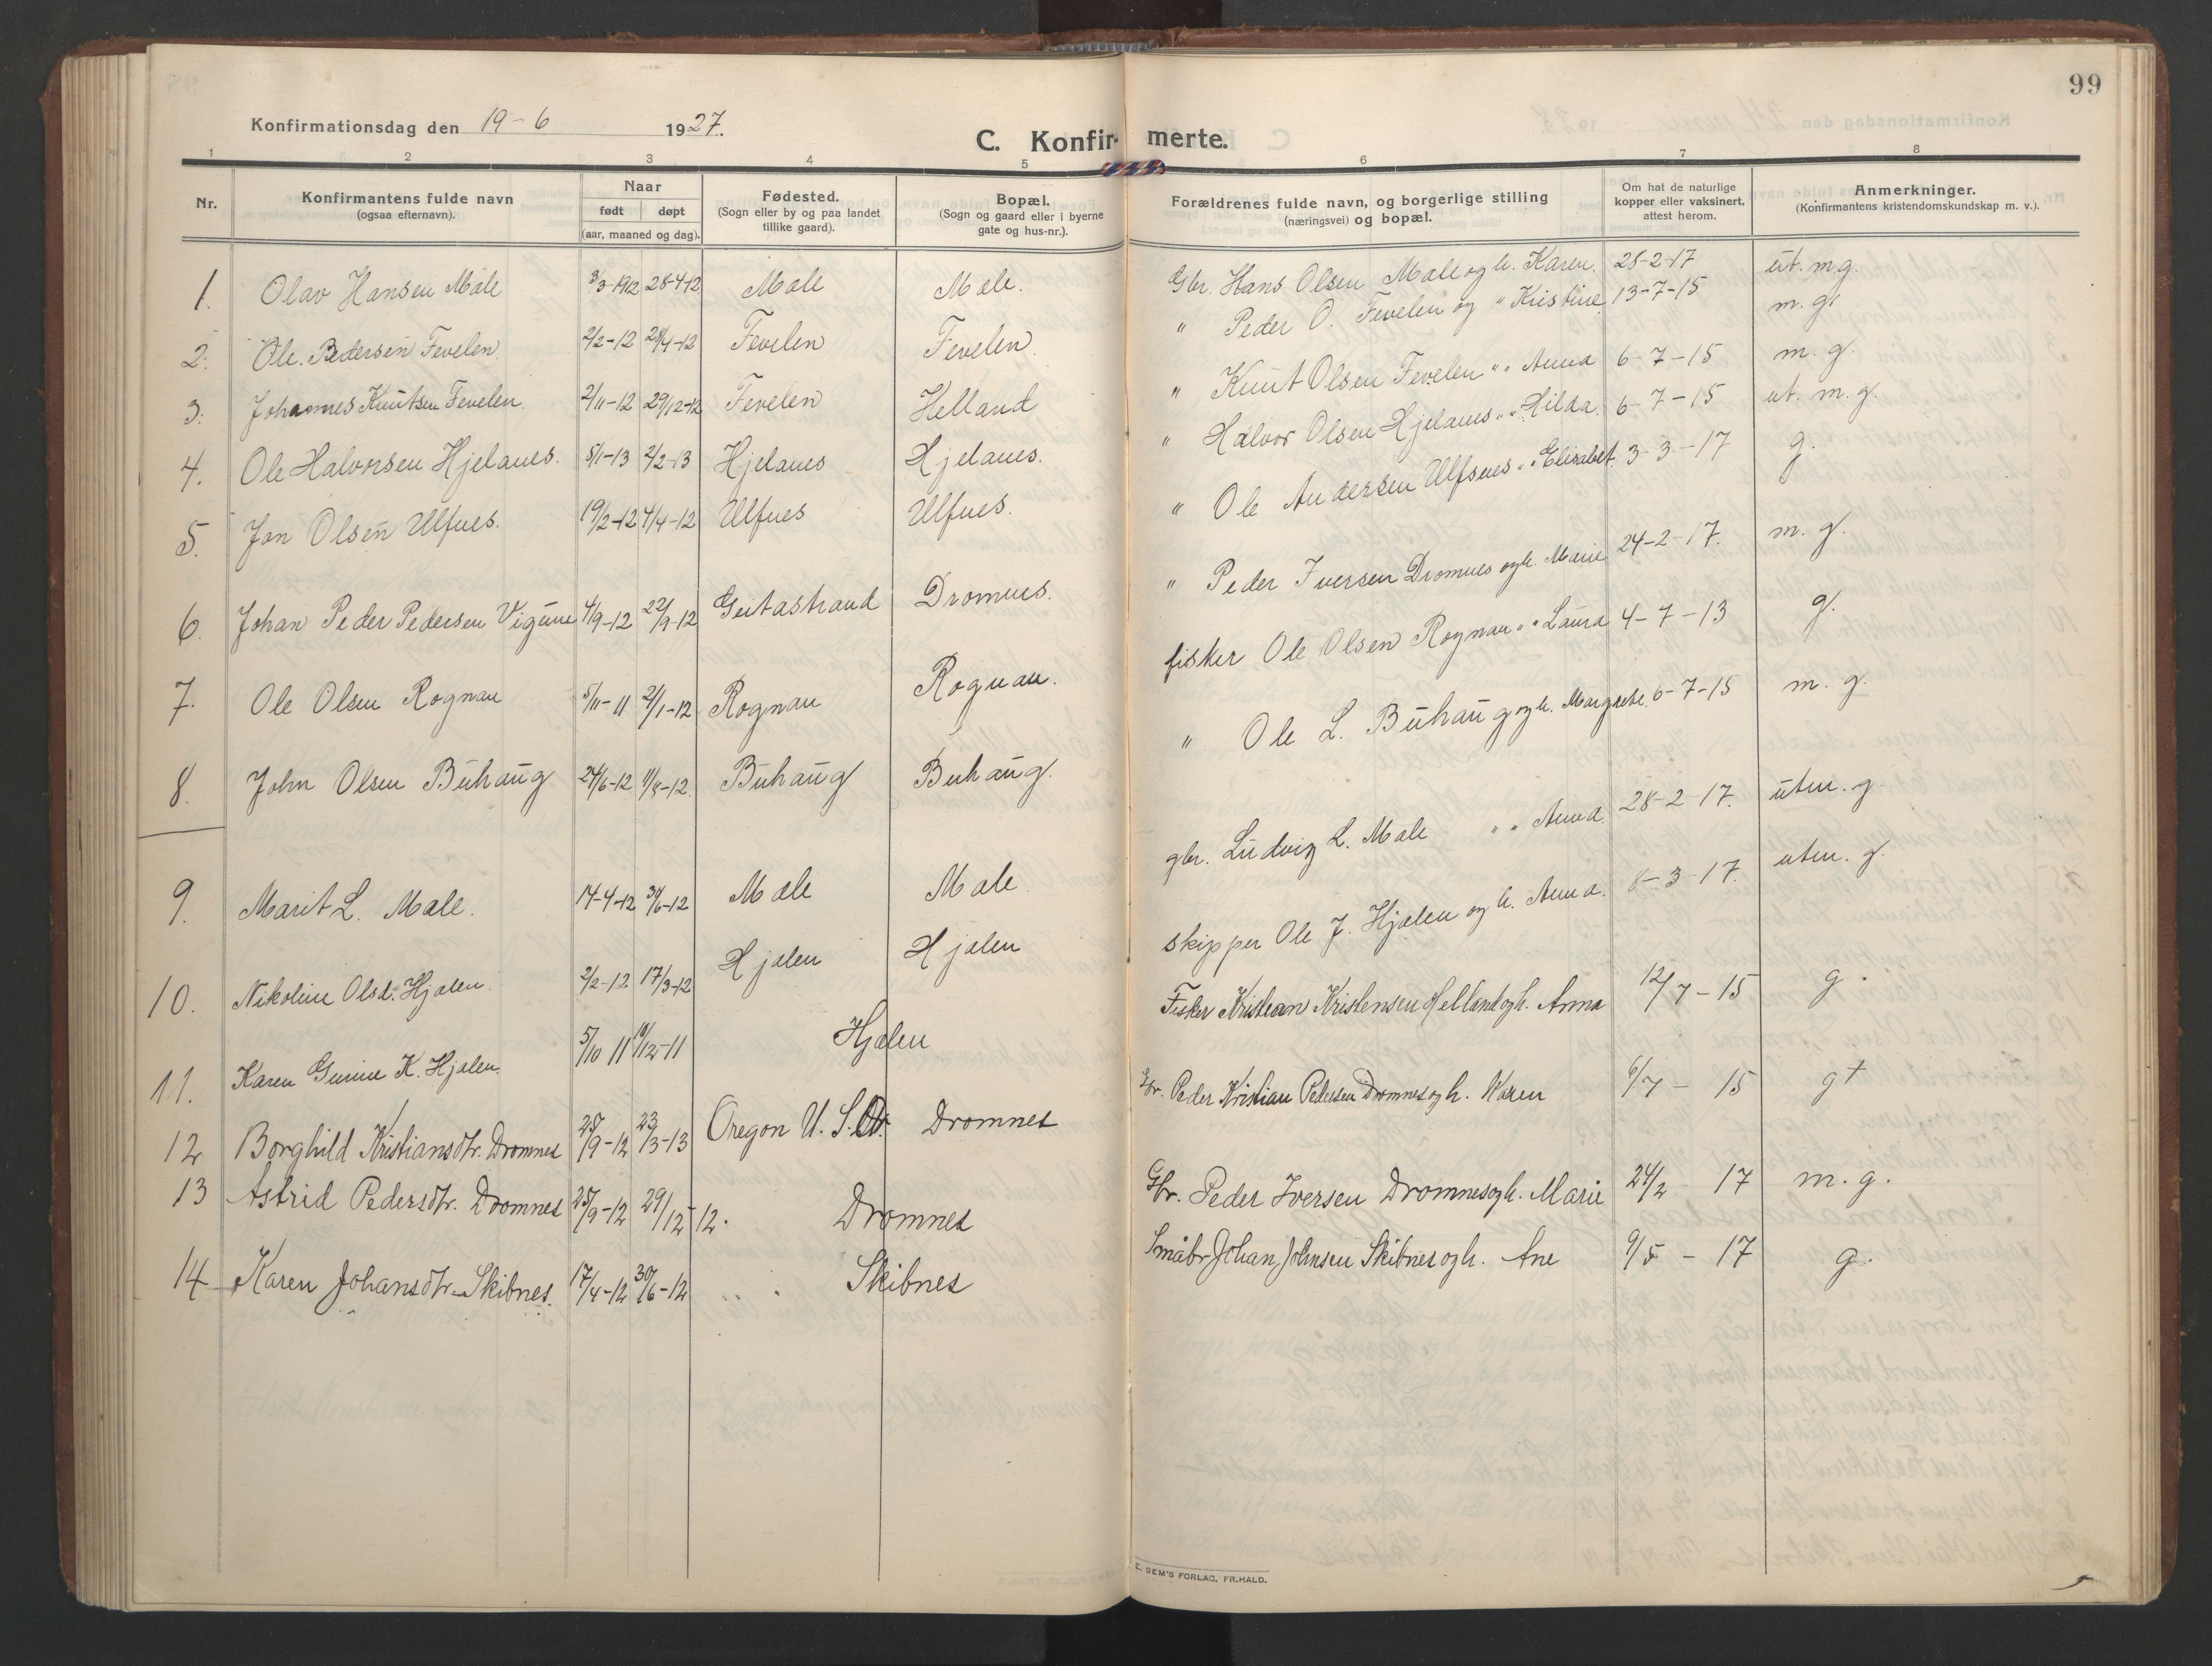 99
Konfirmationsdag den 19-6 1927.
C. Konfirmerte.
1 2 3 4 5 6 7 8
Nr. | Konfirmantens fulde navn (ogsaa efternavn). | Naar født | døpt (aar, maaned og dag). | Fødested. (Sogn eller by og paa landet tillike gaard). | Bopæl. (Sogn og gaard eller i byerne gate og hus-nr.). | Forældrenes fulde navn, og borgerlige stilling (næringsvei) og bopæl. | Om hat de naturlige kopper eller vaksinert, attest herom. | Anmerkninger. (Konfirmantens kristendomskundskap m. v.).
1. Olav Hansen Male 3/3-1912 28-4-12 Male Male. Gbr. Hans Olsen Male og h. Karen. 28-2-17 ut. m.g.
2. Ole Pedersen Fevelen 2/2-12 28/4-12 Fevelen Fevelen " Peder O. Fevelen og " Kristine 13-7-15 m. g.
3. Johannes Knutsen Fevelen 2/11-12 29/12-12 Fevelen Helland " Knut Olsen Fevelen " " Anna 6-7-15 m. g.
4. Ole Halvorsen Hjelanes. 5/1-13 2/2-13 Hjelanes Hjelanes. " Halvor Olsen Hjelanes " " Hilda. 6-7-15 ut. m. g.
5. Jon Olsen Ulfnes. 19/2-12 4/4-12 Ulfnes Ulfnes. " Ole Andersen Ulfsnes " " Elisabet 3-3-17 g.
6. Johan Peder Pedersen Vigume 4/9-12 22/9-12 Geitastrand Dromnes. " Peder Iversen Dromnes og h. Marie 24-2-17. m. g.
7. Ole Olsen Rognan 5/11-11 2/1-12 Rognan Rognan. fisker Ole Olsen Rognan " " Laura 4-7-13 g.
8. John Olsen Buhaug 24/6-12 11/8-12. Buhaug Buhaug. " Ole L. Buhaug og h. Margrete. 6-7-15 m. g.
9. Marit L. Male. 14-4-12 30/6-12 Male Male. gbr. Ludvig L. Male " " Anna. 28-2-17. utm. g.
10. Nikoline Olsd. Hjalen. 2/2-12 17/3-12 Hjalen Hjalen skipper Ole J. Hjalen og h. Anna. 8-3-17. utm. g.
11. Karen Gurine K. Hjalen. 5/10 11 10/12-11 Hjalen Fisker Kristian Kristensen Helland og h. Anna 12/7-15 g.
12 Borghild Kristiansdtr. Dromnes 25/9-12 23/3-13 Oregon U. S. A. Dromnes Gbr. Peder Kristian Pedersen Dromnes og h. Karen 6/7-15 g+
13 Astrid Pedersdtr. Dromnes 25/9-12 29/12-12. Dromnes Gbr. Peder Iversen Dromnes og h. Marie 24/2-17 m. g.
14 Karen Johansdtr. Skibnes. 17/4-12 30/6-12 " " Skibnes Småbr. Johan Johnsen Skibnes og h. Ane 9/5-17 g.
E. SEM'S FORLAG, FR.HALD.